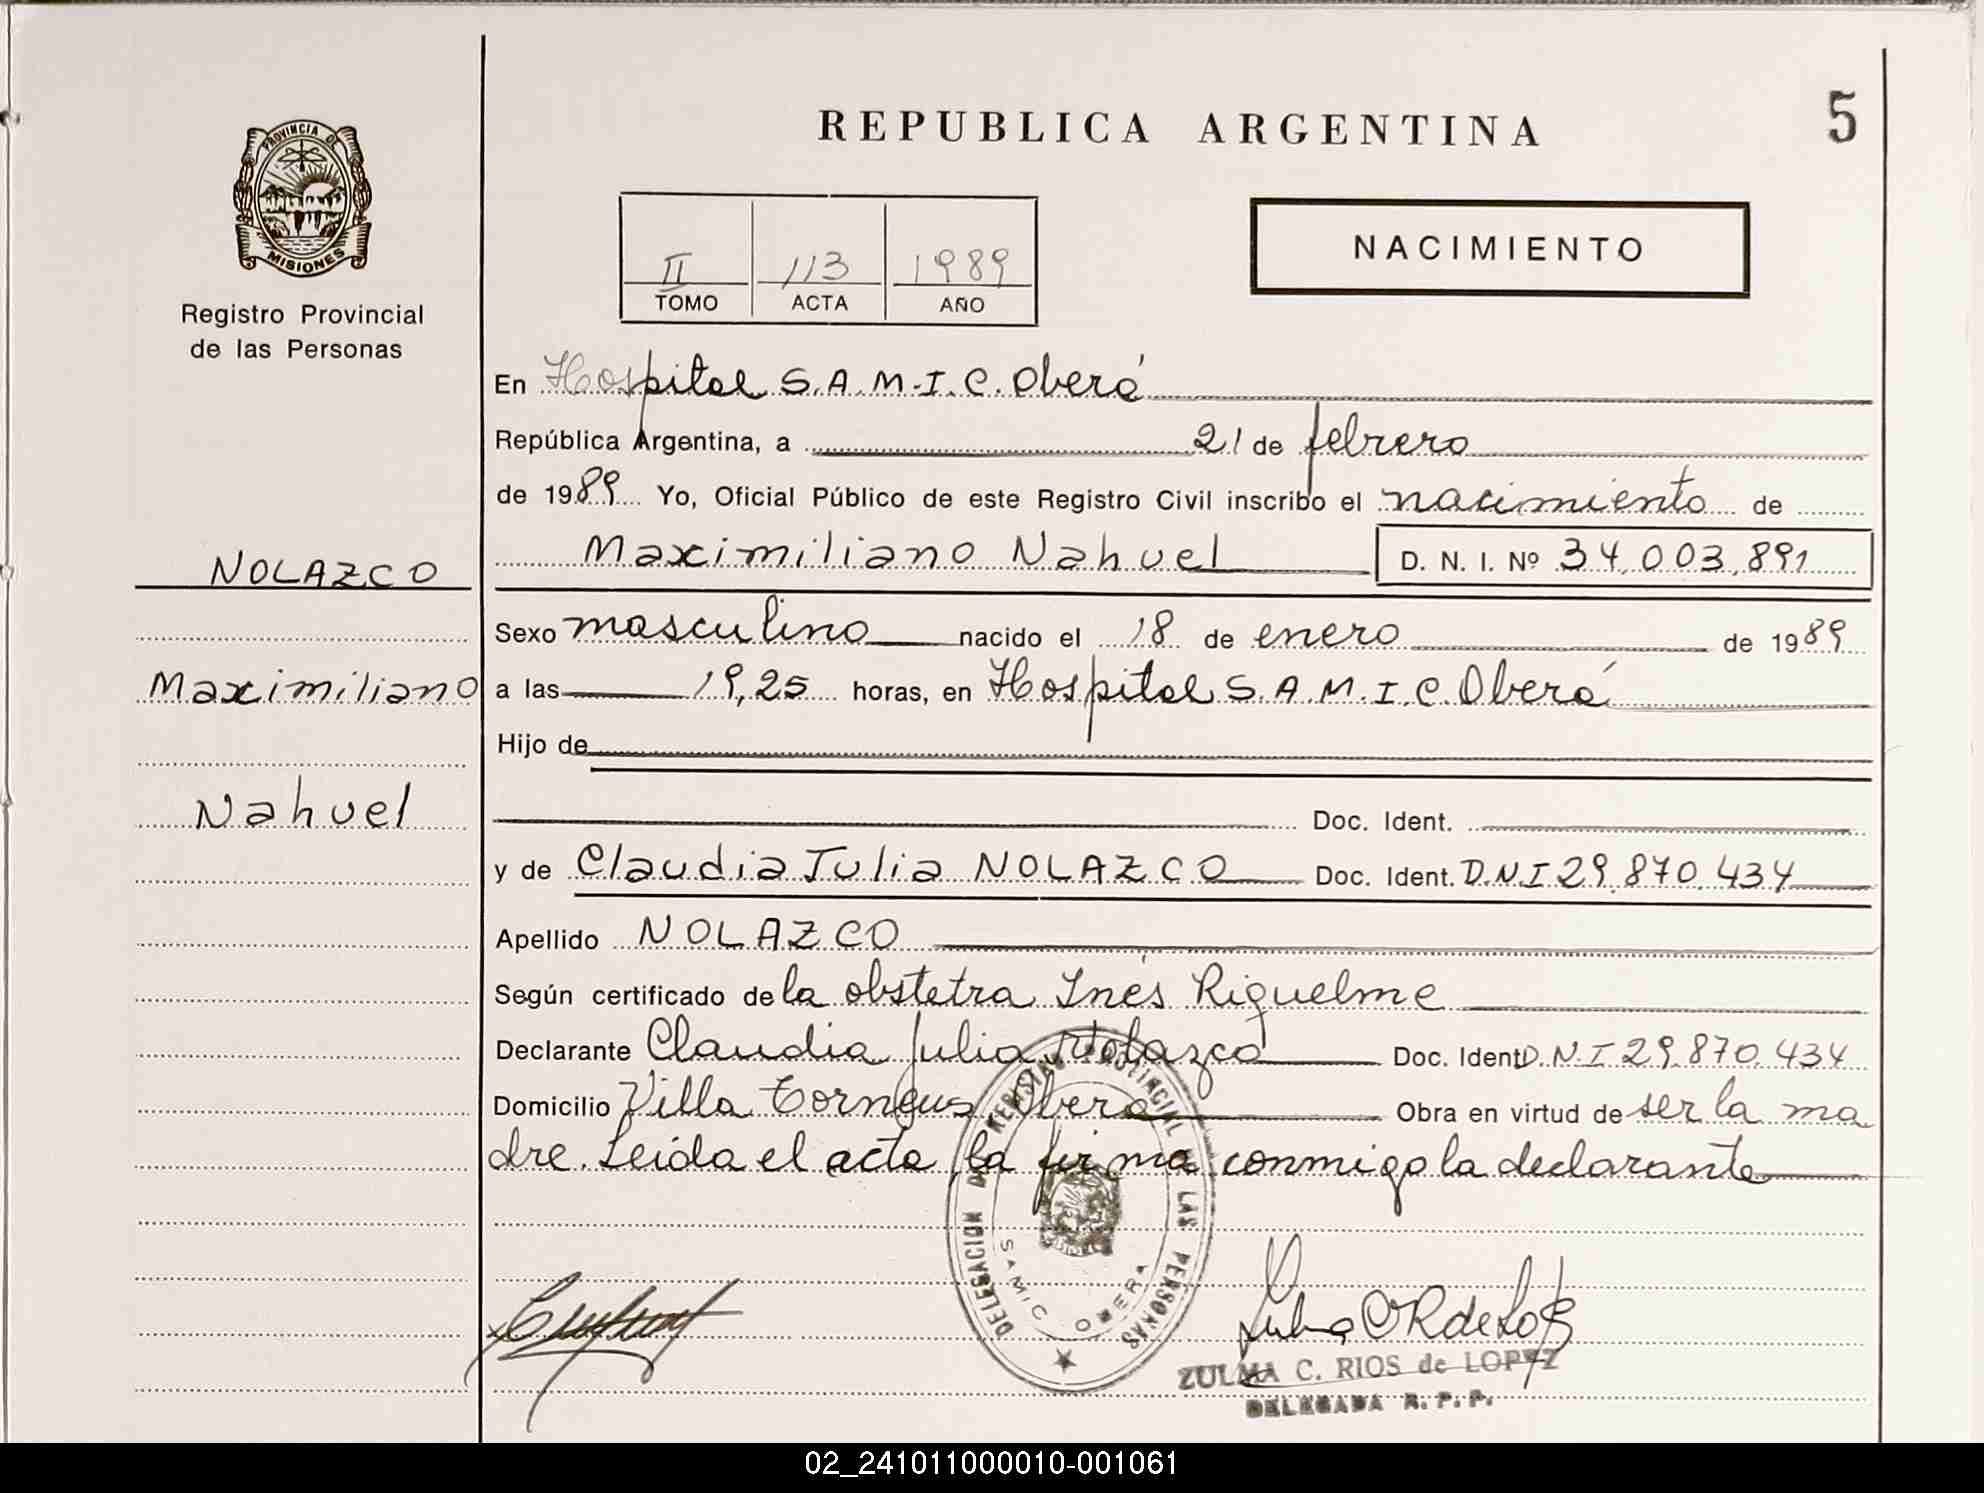 REPUBLICA ARGENTINA
5
PROVINCIA DE
MISIONES
Registro Provincial
de las Personas
NACIMIENTO
II 113 1989
TOMO ACTA AÑO
En Hospital S.A.M.I.C. Oberá
República Argentina, a 21 de febrero
de 1989 Yo, Oficial Público de este Registro Civil inscribo el nacimiento de
Maximiliano Nahuel D. N. I. Nº 34.003.891
NOLAZCO
Maximiliano
Nahuel
Sexo masculino nacido el 18 de enero de 1989
a las 19,25 horas, en Hospital S.A.M.I.C. Oberá
Hijo de
Doc. Ident.
y de Claudia Julia NOLAZCO Doc. Ident. D.N.I 29.870.434
Apellido NOLAZCO
Según certificado de la obstetra Inés Riquelme
Declarante Claudia Julia Nolazco Doc. Ident D.N.I 29.870.434
Domicilio Villa Oberá Obra en virtud de ser la ma
dre. Leída el acta, la firma conmigo la declarante
DELEGACION DEL REGISTRO PROVINCIAL DE LAS PERSONAS
SAMIC OBERA
ZULMA C. RIOS de LOPEZ
DELEGADA R. P. P.
02_241011000010-001061